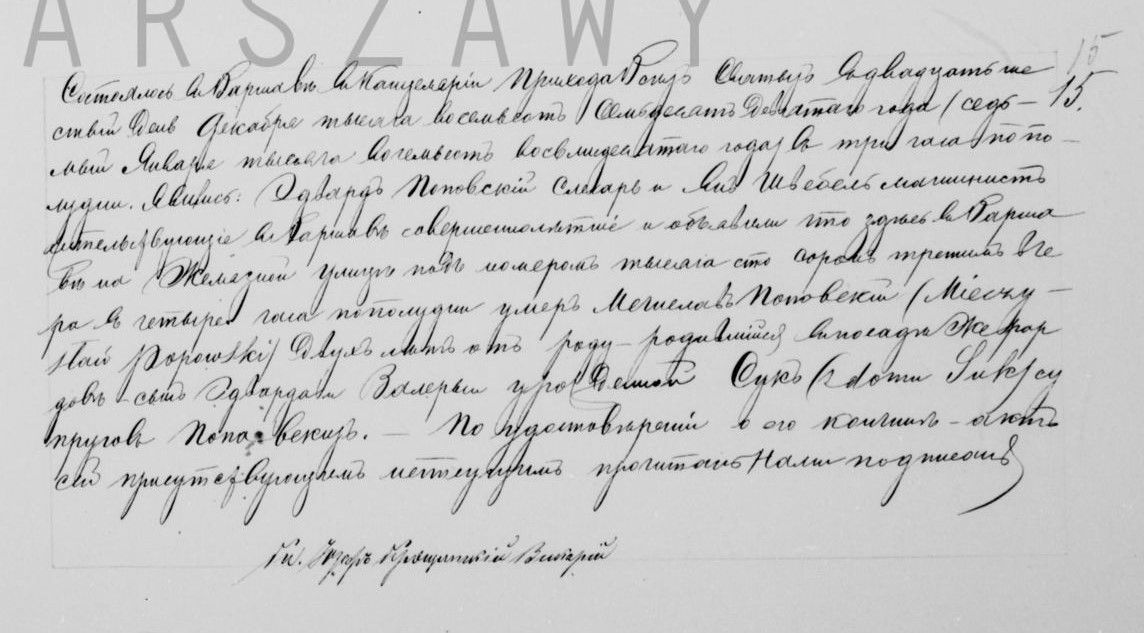 ARSZAWY
15
Состоялось въ Варшавѣ въ Канцеляріи Прихода Всѣхъ Святыхъ въ двадцать ше
стый день Декабря тысяча восемьсотъ семьдесятъ девятаго года (седь – 15.
мый Января тысяча восемьсотъ восьмидесятаго года) въ три часа попо –
лудни. Явились: Эдвардъ Поповскій слесарь и Янъ Швебель машинистъ
жительствующіе въ Варшавѣ совершеннолѣтніе и объявили что здѣсь въ Варша
вѣ на Желязной улицѣ подъ номеромъ тысяча сто сорокъ третимъ вче
ра въ четыре часа пополудни умеръ Мечиславъ Поповскій (Mieczy –
sław Popowski) двухъ лѣтъ отъ роду – родившійся въ посадѣ Жерар
довъ – сынъ Эдварда и Валеріи урожденной Сукъ (z domu Suk) су
пруговъ Поповскихъ. – По удостовѣреніи о его кончинѣ – актъ
сей присутствующимъ неграмотнымъ прочитанъ Нами подписанъ
Кс. Викарій